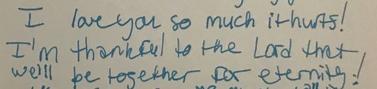 I love you so much it hurts!
I'm thankful to the Lord that
we'll be together for eternity!